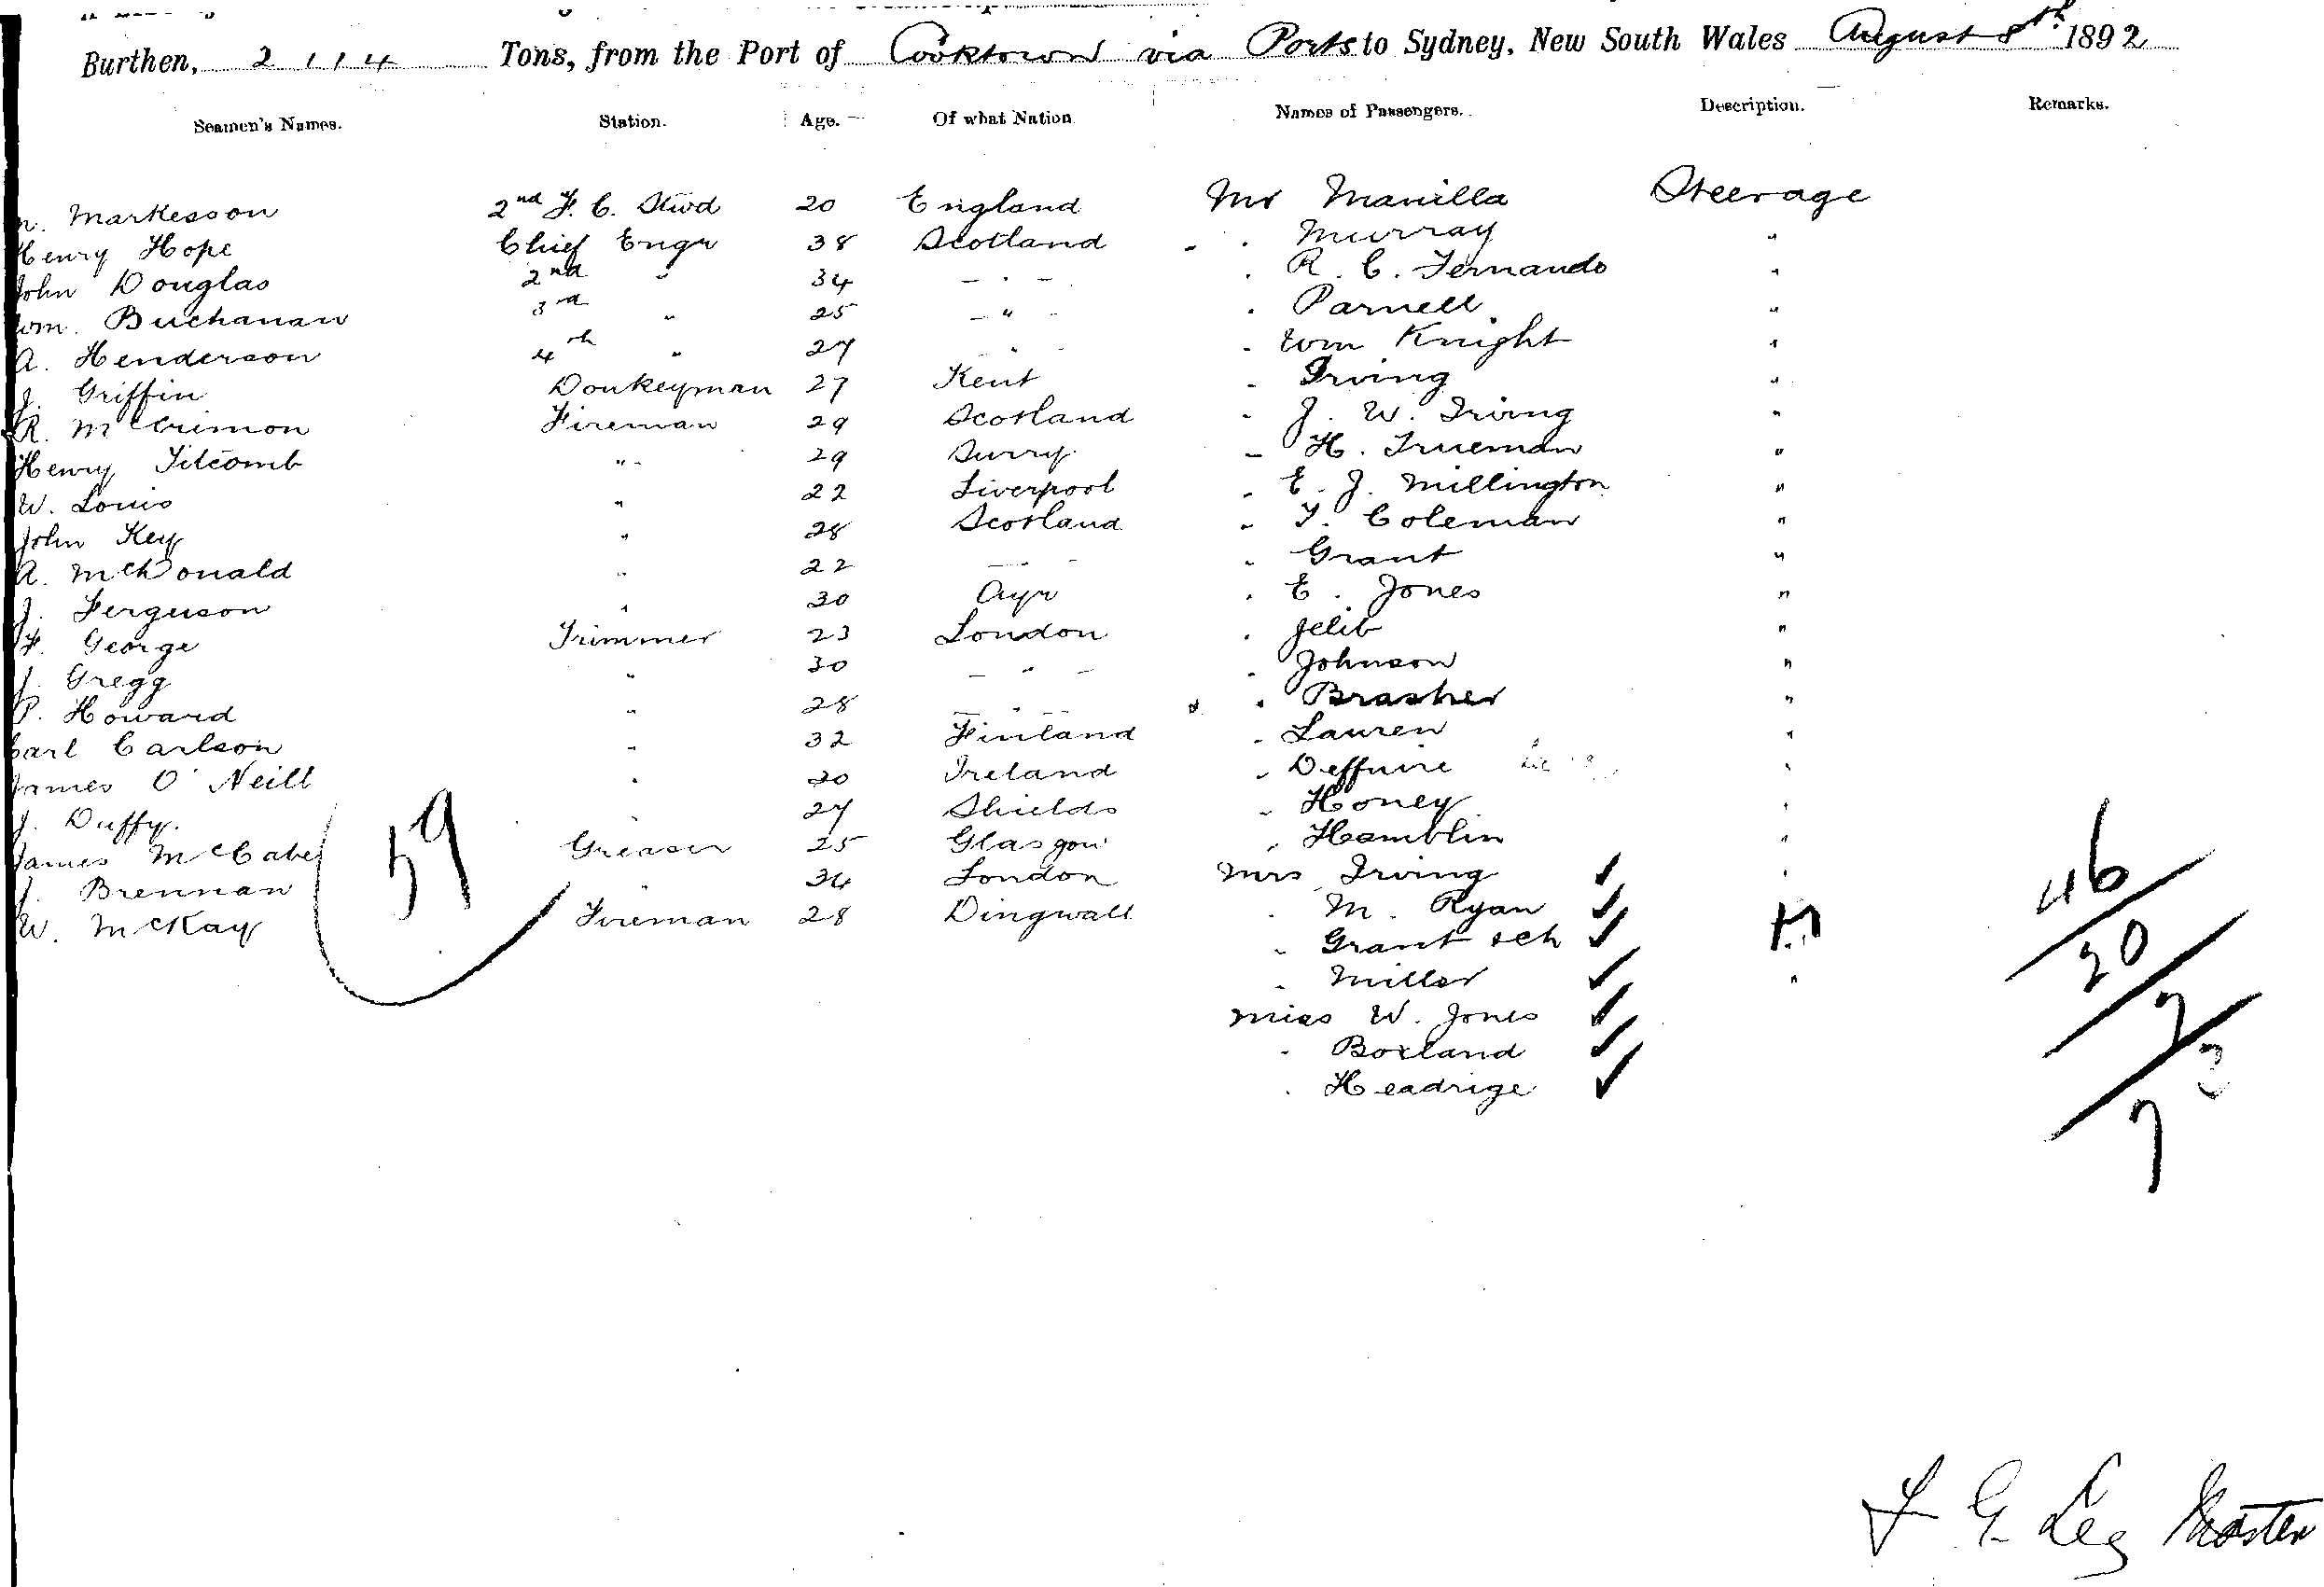 Burthen, 2114 Tons, from the Port of Cooktown via Ports to Sydney, New South Wales August 8th 1892
Seamen's Names. Station. Age. Of what Nation Names of Passengers. Description. Remarks.
Markesson 2nd F. C. Stwd 20 England Mr Manilla Steerage
Henry Hope Chief Engr 38 Scotland " . Murray "
John Douglas 2nd " 34 - " - . R. C. Fernando "
Wm. Buchanan 3rd " 25 - " - . Parnell "
A. Henderson 4th " 27 " . Wm Knight "
J. Griffin Donkeyman 27 Kent - Irving "
R. McCrimon Fireman 29 Scotland - J. W. Irving "
Henry Titcomb " 29 Surry - H. Trueman "
W. Louis " 22 Liverpool . E. J. Millington "
John Key " 28 Scotland - T. Coleman "
A. McDonald " 22 - " - . Grant "
J. Ferguson " 30 Ayr . E. Jones "
F. George Trimmer 23 London . Jelib "
J. Gregg " 30 - " - . Johnson "
P. Howard " 28 - " - " . Brasher "
Carl Carlson " 32 Finland . Lauren "
James O'Neill " 20 Ireland . Deffuire "
J. Duffy. " 27 Shields . Honey "
James McCabe Greaser 25 Glasgow . Hamblin "
J. Brennan " 34 London Mrs Irving ✓ "
W. McKay Fireman 28 Dingwall . M. Ryan ✓
. Grant & ch ✓
. Miller ✓ "
Miss W. Jones ✓
. Boxland ✓
. Headrige ✓
59
46
20
7
7
F G Leg Master